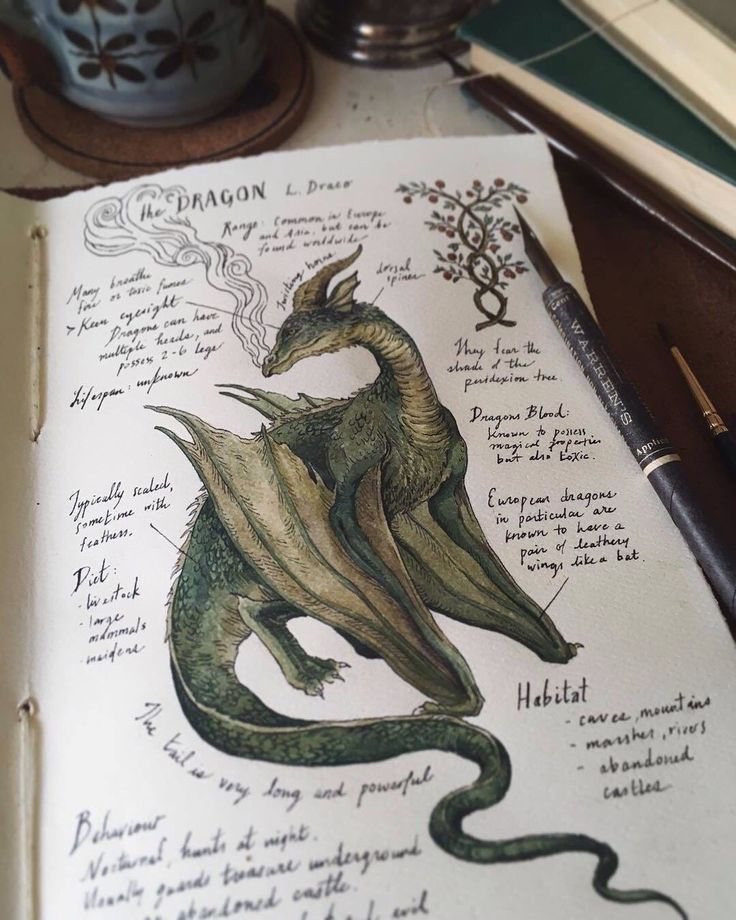 the DRAGON L. Draco
Range: Common in Europe
and Asia, but can be
found worldwide
Many breathe
fire or toxic fumes
> Keen eyesight
Dragons can have
multiple heads, and
possess 2-6 legs
Lifespan: unknown
Twisting horns
dorsal
spines
They fear the
shade of the
peridexion tree.
Dragons Blood:
Known to possess
magical properties
but also toxic.
Typically scaled,
sometime with
feathers.
European dragons
in particular are
known to have a
pair of leathery
wings like a bat.
Diet:
- livestock
- large
mammals
- maidens
Habitat
- caves, mountains
- marshes, rivers
- abandoned
castles
The tail is very long and powerful
Behaviour
Nocturnal, hunts at night.
Usually guards treasure underground
abandoned castle.
evil
WARREN'S